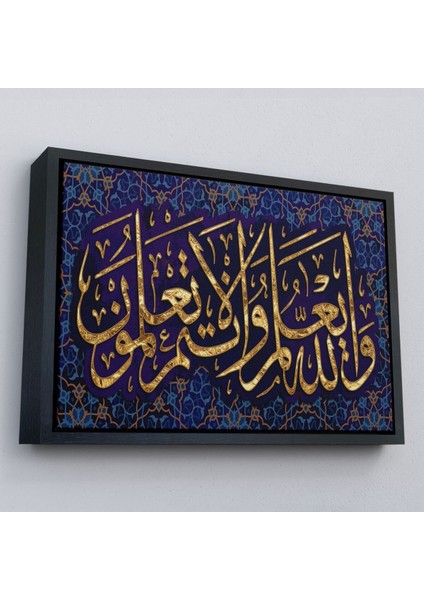 وَاللّٰهُ يَعْلَمُ وَأَنْتُمْ لَا تَعْلَمُونَ